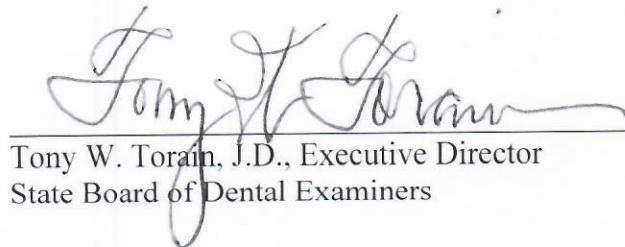 Tony W. Torain
Tony W. Torain, J.D., Executive Director
State Board of Dental Examiners